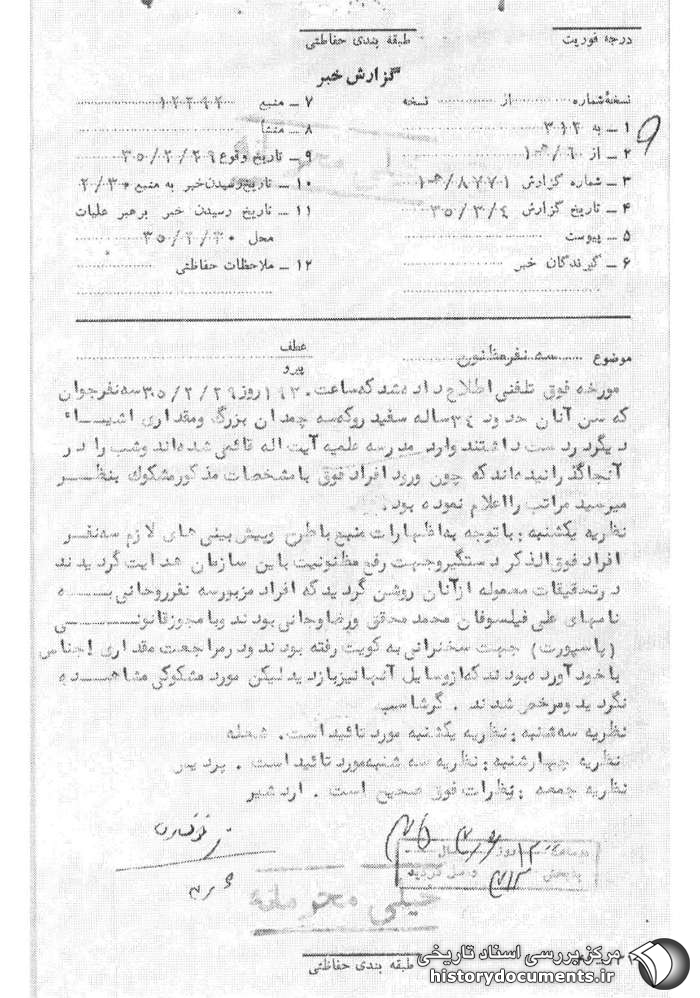 درجه فوریت
طبقه بندی حفاظتی
گزارش خبر
نسخهٔ شماره ........ از ........ نسخه
۱ ــ به ۳۱۲
۲ ــ از ۶ / ۱۰ه
۳ ــ شماره گزارش ۸۷۷۱ / ۱۰ه
۴ ــ تاریخ گزارش ۳۵/۳/۴
۵ ــ پیوست
۶ ــ گیرندگان خبر
۷ ــ منبع ۱۲۲۹۲
۸ ــ منشأ
۹ ــ تاریخ وقوع ۳۵/۲/۲۹
۱۰ ــ تاریخ رسیدن خبر به منبع ۲/۳۰
۱۱ ــ تاریخ رسیدن خبر برهبر عملیات
محل ۳۵/۲/۳۰
۱۲ ــ ملاحظات حفاظتی
موضوع ...... سه نفر مظنون
عطف
پیرو
مورخه فوق تلفنی اطلاع داده شد که ساعت ۱۹۳۰ روز ۳۵/۲/۲۹ سه نفر جوان
که سن آنان حدود ۳۴ ساله سفید رو که سه چمدان بزرگ و مقداری اشیـــاء
دیگر در دست داشتند وارد مدرسه علمیه آیت اله قائمی شده‌اند و شب را در
آنجا گذرانیده‌اند که چون ورود افراد فوق با مشخصات مذکور مشکوک بنظــر
میرسید مراتب را اعلام نموده بود.
نظریه یکشنبه : با توجه به اظهارات منبع با طرح و پیش بینی های لازم سه نفــر
افراد فوق الذکر دستگیر و جهت رفع مظنونیت باین سازمان هدایت گردیدند
در تحقیقات معموله از آنان روشن گردید که افراد مزبور سه نفر روحانی بــــه
نامهای علی فیلسوفان محمد محقق و رضا وحانی بودند و با مجوز قانونــــــی
(پاسپورت) جهت سخنرانی به کویت رفته بودند و در مراجعت مقداری اجناس
با خود آورده بودند که از وسایل آنها نیز بازدید لیکن مورد مشکوکی مشاهــده
نگردید و مرخص شدند . گرشاسب
نظریه سه شنبه : نظریه یکشنبه مورد تائید است. شعله
نظریه چهارشنبه : نظریه سه شنبه مورد تائید است . پردیس
نظریه جمعه : نظرات فوق صحیح است . اردشیر
در ساعت ... روز ... سال
به بخش ۳۱۲ واصل گردید
خیلی محرمانه
طبقه بندی حفاظتی
مرکز بررسی اسناد تاریخی
historydocuments.ir